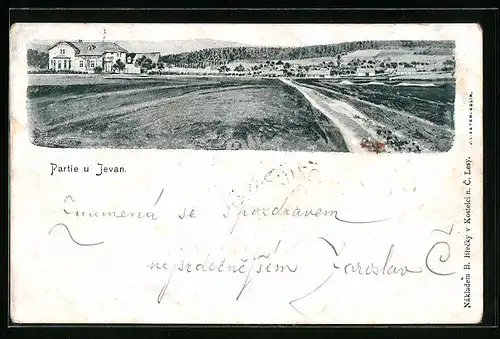 Partie u Jevan.
Znamená se s pozdravem
nejsrdečnějším Jaroslav Č
Nákladem B. Břečky v Kostelci n. Č. Lesy.